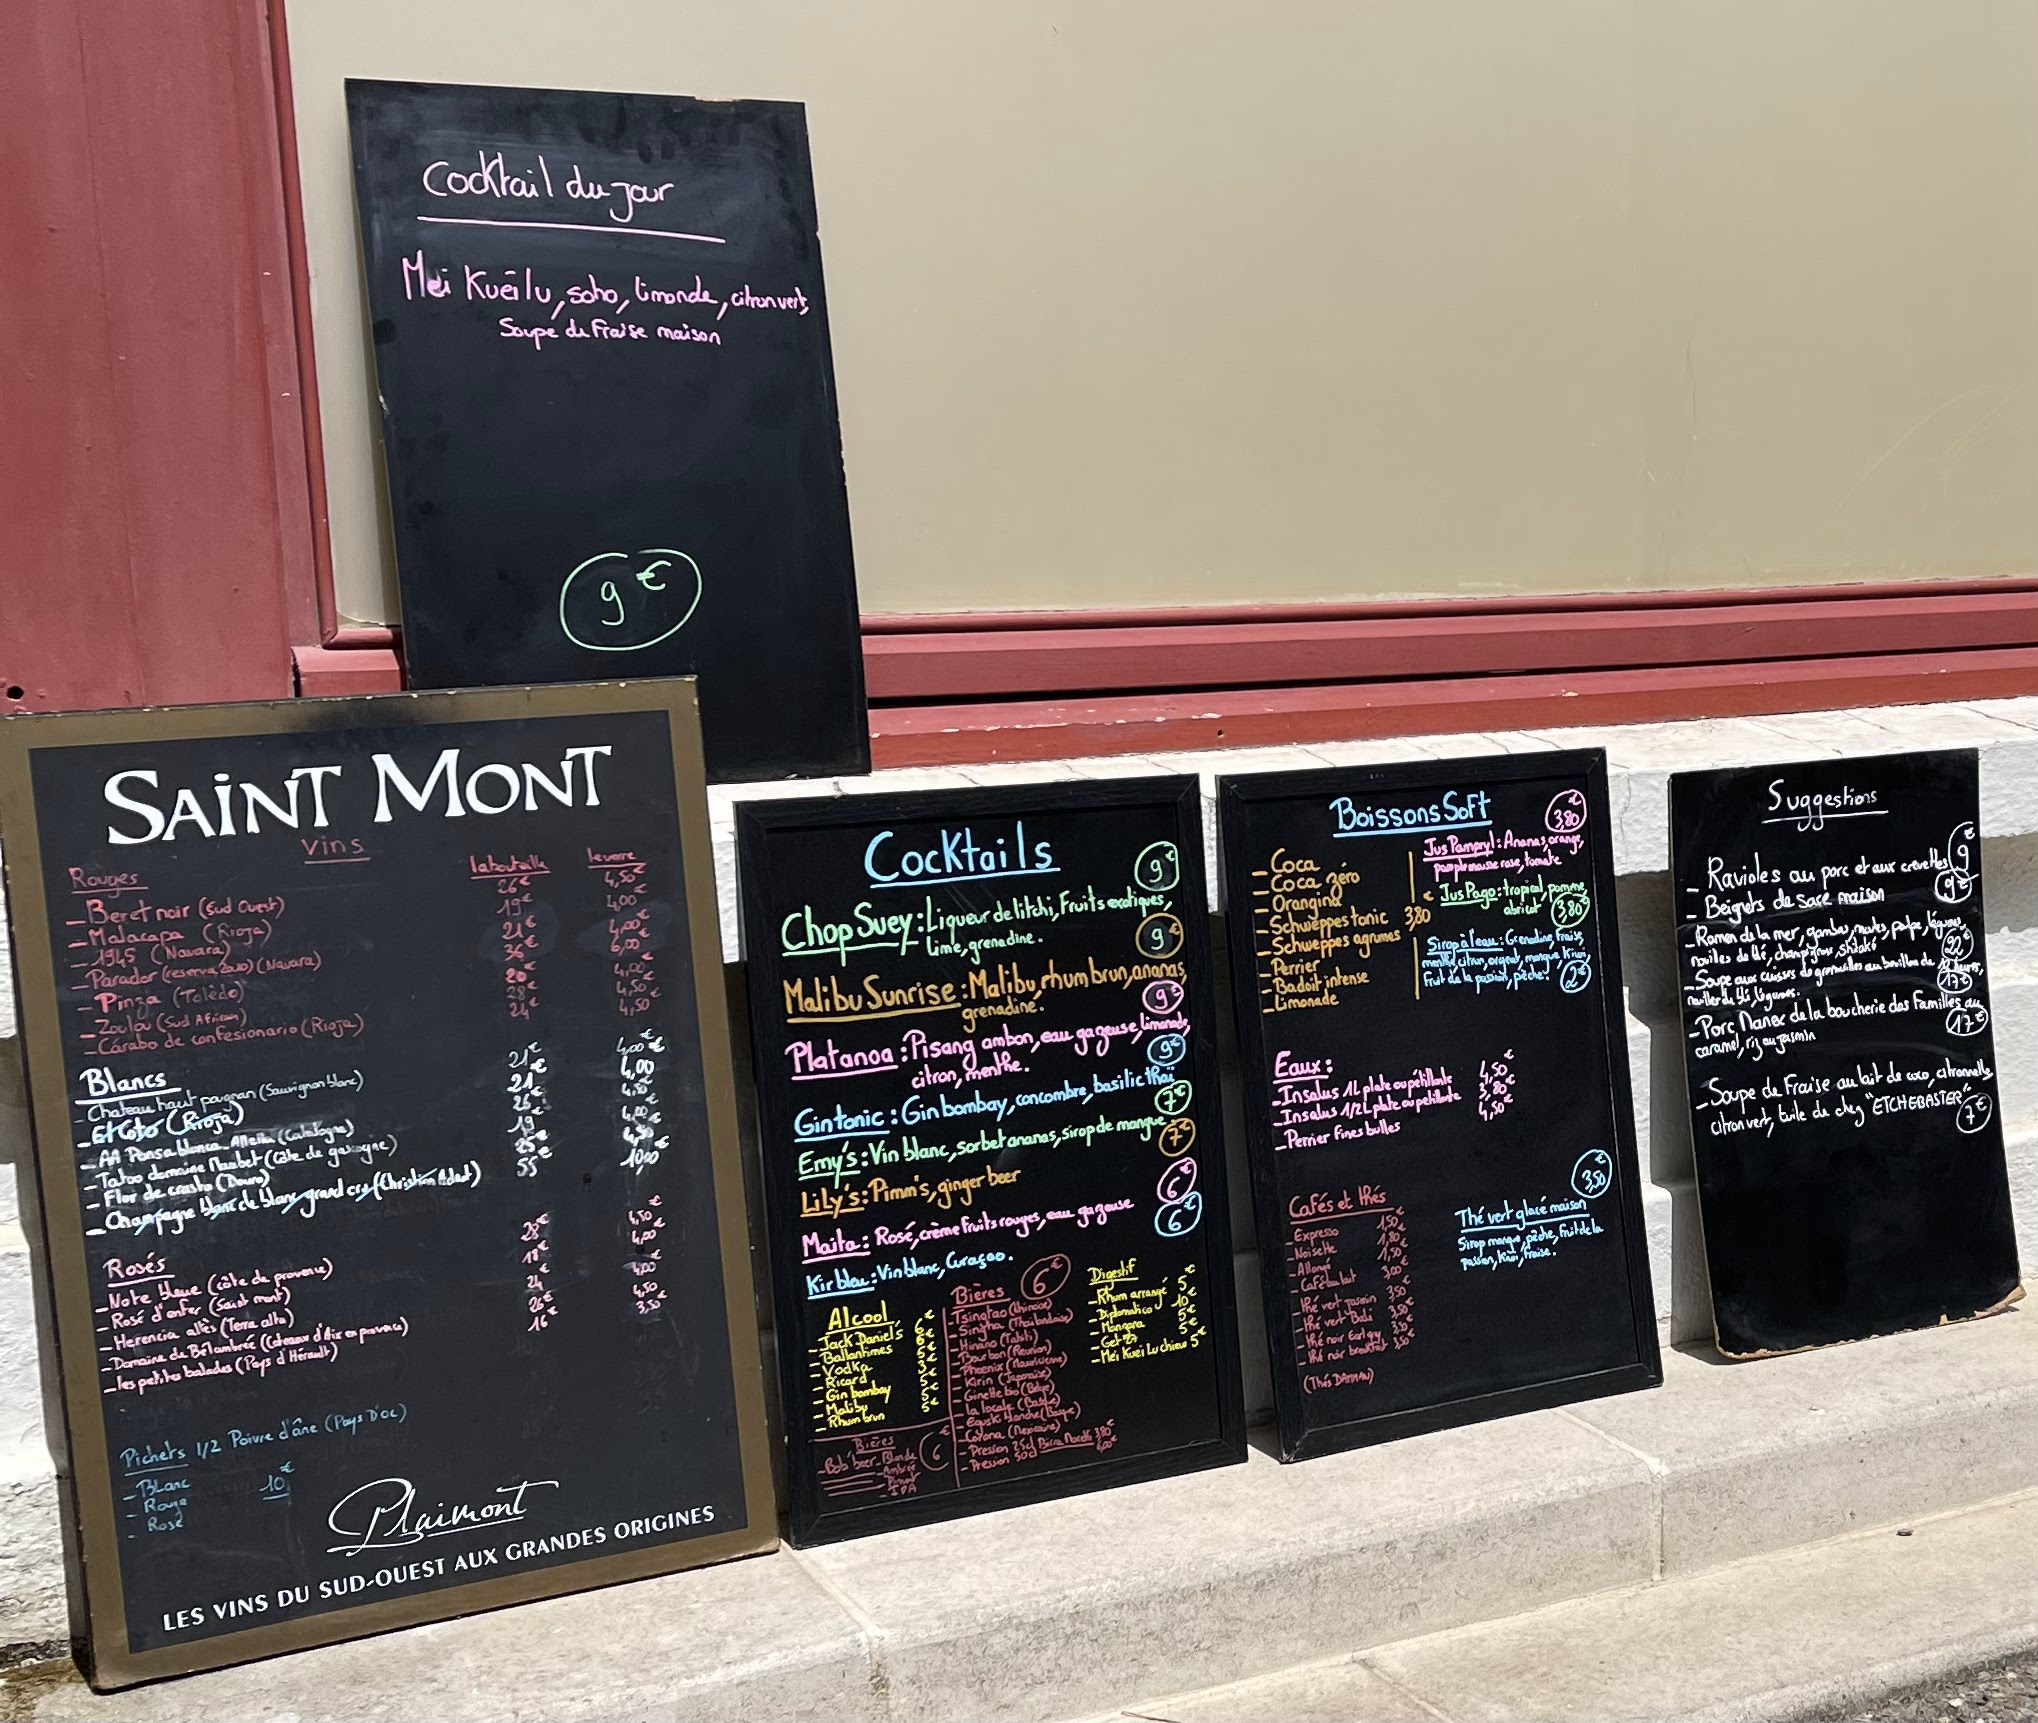 Cocktail du jour
Mei Kuëilu, soho, limonde, citron vert,
Soupe de Fraise maison
9€
SAINT MONT
Vins
la bouteille le verre
Rouges 26€ 4,50€
- Beret noir (Sud Ouest) 19€ 4,00
- Malacapa (Rioja) 21€ 4,00€
- 1945 (Navara) 36€ 6,00€
- Parador (reserva 2010) (Navara) 20€ 4,00
- Pinza (Tolédo) 28€ 4,50€
- Zoulou (Sud Africain) 24€ 4,50€
- Cárabo de confesionario (Rioja)
Blancs 21€ 4,00€
- Chateau haut pougnan (Sauvignon blanc) 21€ 4,00
- El Coto (Rioja)
- AA Ponsa blanca Alleila (Catalogne) 19
- Tatoo domaine Maubet (côte de gascogne) 25€ 4,50
- Flor de crasto (Douro) 55 10,00
- Champagne blanc de blanc grand cru (Christian Adut)
Rosés 28€ 4,50
- Note bleue (côte de provence) 18€ 4,00
- Rosé d'enfer (Saint mont) 24 4,00
- Herencia altès (Terra alta) 26€ 4,50
- Domaine de Bélambrée (Coteaux d'Aix en provence) 16 3,50
- les petites balades (Pays d'Hérault)
Pichets 1/2 Poivre d'âne (Pays D'oc)
- Blanc 10€
- Rouge
- Rosé
Plaimont
LES VINS DU SUD-OUEST AUX GRANDES ORIGINES
Cocktails
9€
Chop Suey : Liqueur de litchi, Fruits exotiques,
lime, grenadine.
9€
Malibu Sunrise : Malibu, rhum brun, ananas,
grenadine.
9€
Platanoa : Pisang ambon, eau gazeuse, limonade,
citron, menthe.
9€
Gintonic : Gin bombay, concombre, basilic thaï
7€
Emy's : Vin blanc, sorbet ananas, sirop de mangue
7€
Lily's : Pimm's, ginger beer
6€
Maita : Rosé, crème fruits rouges, eau gazeuse
6€
Kir bleu : Vin blanc, Curaçao.
Alcool
- Jack Daniel's
- Ballantines
- Vodka
- Ricard
- Gin bombay
- Malibu
- Rhum brun
Bières
- Bob'beer - Blonde
- Ambrée
- IPA
6
Bières 6€
- Tsingtao (Chinoise)
- Singha (Thaïlandaise)
- Hinano (Tahiti)
- Bourbon (Réunion)
- Phoenix (Mauricienne)
- Kirin (Japonaise)
- Ginette bio (Belge)
- la locale (Basque)
- Eguski blanche (Basque)
- Corona (Mexicaine)
- Pression 25cl Birra Moretti 3,80
- Pression 50cl 6,00€
Digestif
- Rhum arrangé 5€
- Diplomatico 10€
- Manzana 5€
- Get 27 5€
- Mei Kuei Lu chiew 5€
Boissons Soft
- Coca
- Coca zéro
- Orangina
- Schweppes tonic 3,80€
- Schweppes agrumes
- Perrier
- Badoit intense
- Limonade
3,80€
Jus Pampryl : Ananas, orange,
pamplemousse rose, tomate
Jus Pago : tropical, pomme,
abricot 3,80€
Sirop à l'eau : Grenadine, fraise,
menthe, citron, orgeat, mangue, Kiwi,
Fruit de la passion, pêche. 2€
Eaux :
- Insalus 1L plate ou pétillante 4,50€
- Insalus 1/2L plate ou pétillante 3,80€
- Perrier fines bulles 4,50€
Cafés et thés
- Expresso 1,50€
- Noisette 1,80
- Allongé 1,50€
- Café au lait 3,00€
- thé vert jasmin 3,50
- thé vert Bali 3,50€
- thé noir earl grey 3,50€
- thé noir breakfast 3,50€
(Thés DAMMAN)
3,50€
Thé vert glacé maison
Sirop mangue, pêche, fruit de la
passion, Kiwi, fraise.
Suggestions
- Ravioles au porc et aux crevettes 9€
- Beignets de sace maison 9€
- Ramen de la mer, gambas, moules, poulpe, légumes,
nouilles de blé, champignons shitaké 22€
- Soupe aux cuisses de grenouilles au bouillon de 12 heures,
nouilles de blé, légumes. 17€
- Porc Manex de la boucherie des Familles au
caramel, riz au jasmin 17€
- Soupe de Fraise au lait de coco, citronnelle,
citron vert, tuile de chez "ETCHEBASTER" 7€